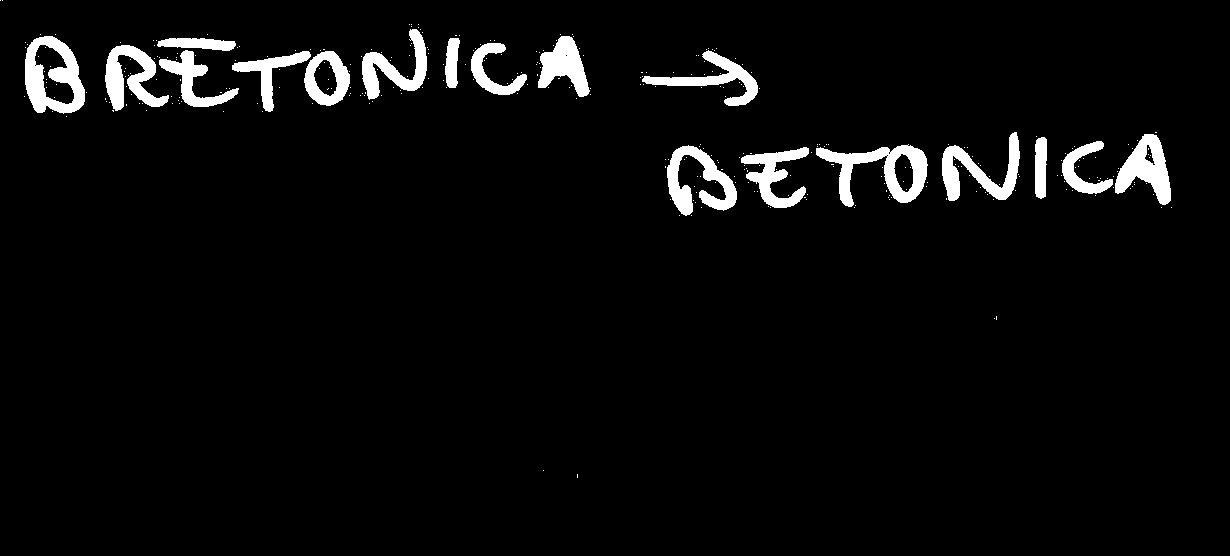 BRETONICA →
BETONICA